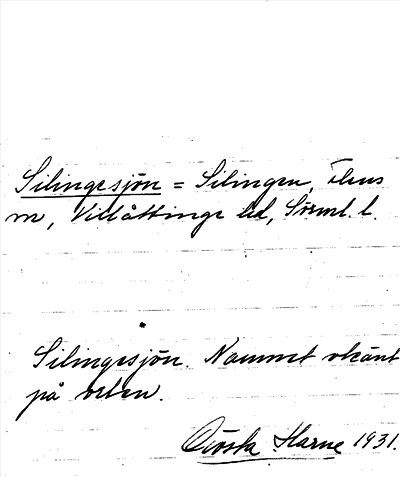 Silingesjön = Silingen, Flens
m, Villåttinge hd, Sörml. l.
Silingesjön. Namnet okänt
på orten.
Gösta Harne 1931.